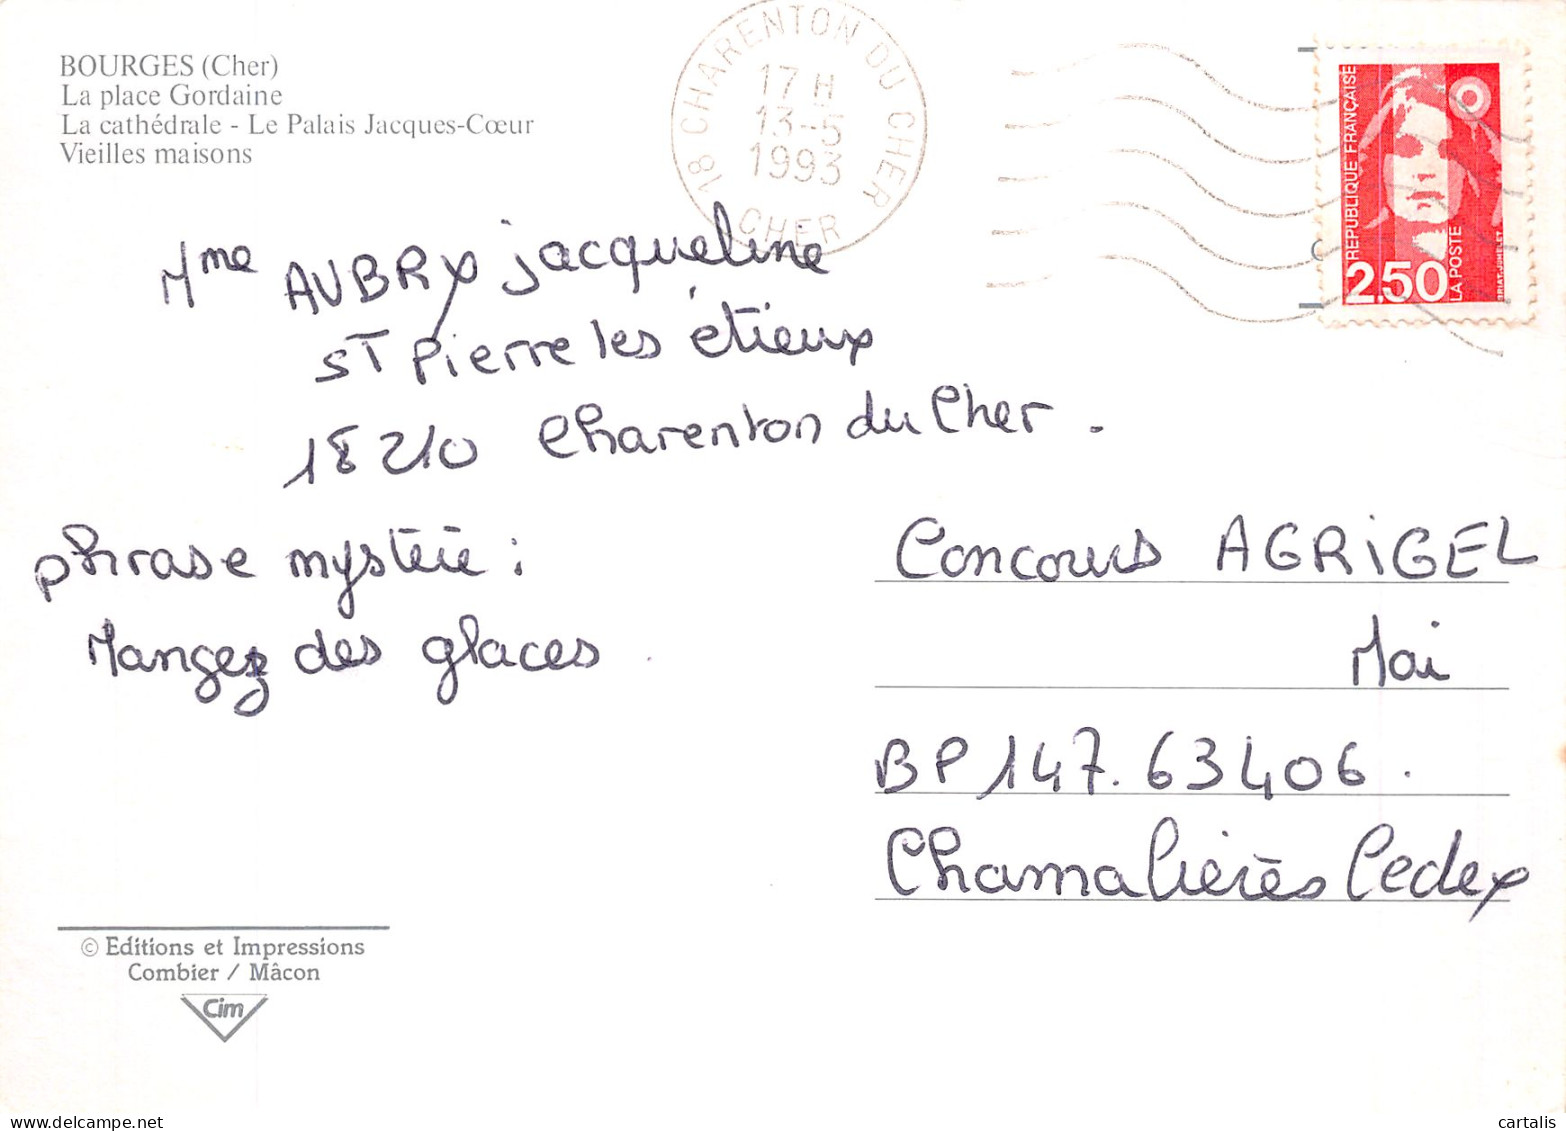 BOURGES (Cher)
La place Gordaine
La cathédrale - Le Palais Jacques-Cœur
Vieilles maisons
18 CHARENTON DU CHER
17 H
13-5
1993
CHER
REPUBLIQUE FRANÇAISE
LA POSTE
2,50
Mme AUBRY jacqueline
ST Pierre les étieux
18210 Charenton du Cher.
phrase mystère :
Mangez des glaces
Concours AGRIGEL
Mai
BP 147. 63406.
Chamalières Cedex
© Editions et Impressions
Combier / Mâcon
Cim
cartalis